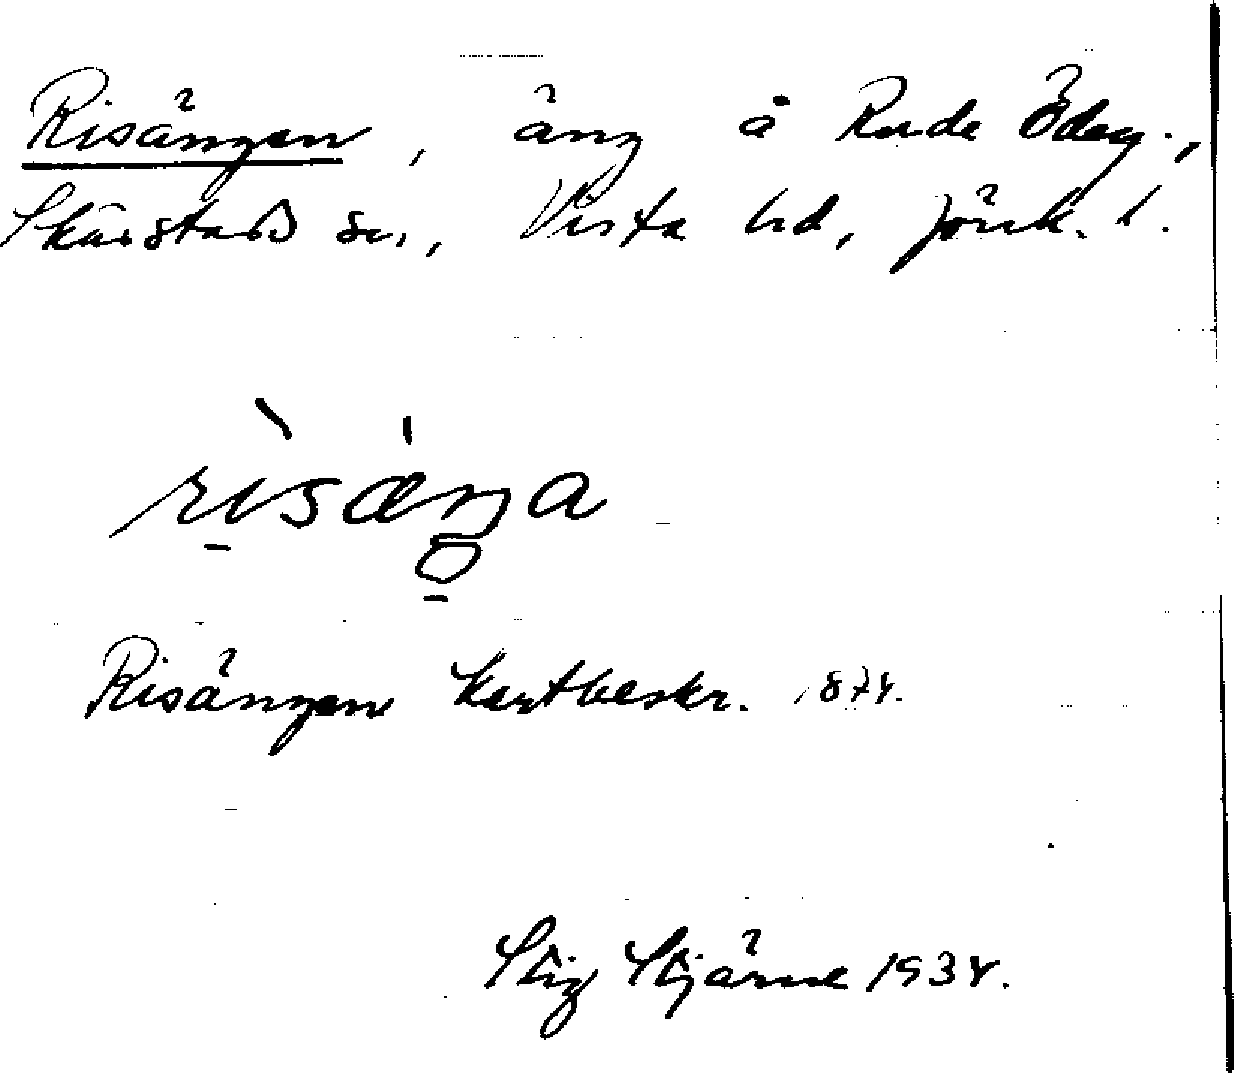 Risängen, äng å Rude Ödeg.,
Skärstads sn, Vista hd, Jönk. l.
rìsæŋa
Risängen kartbeskr. 1874.
Stig Stjärne 1934.